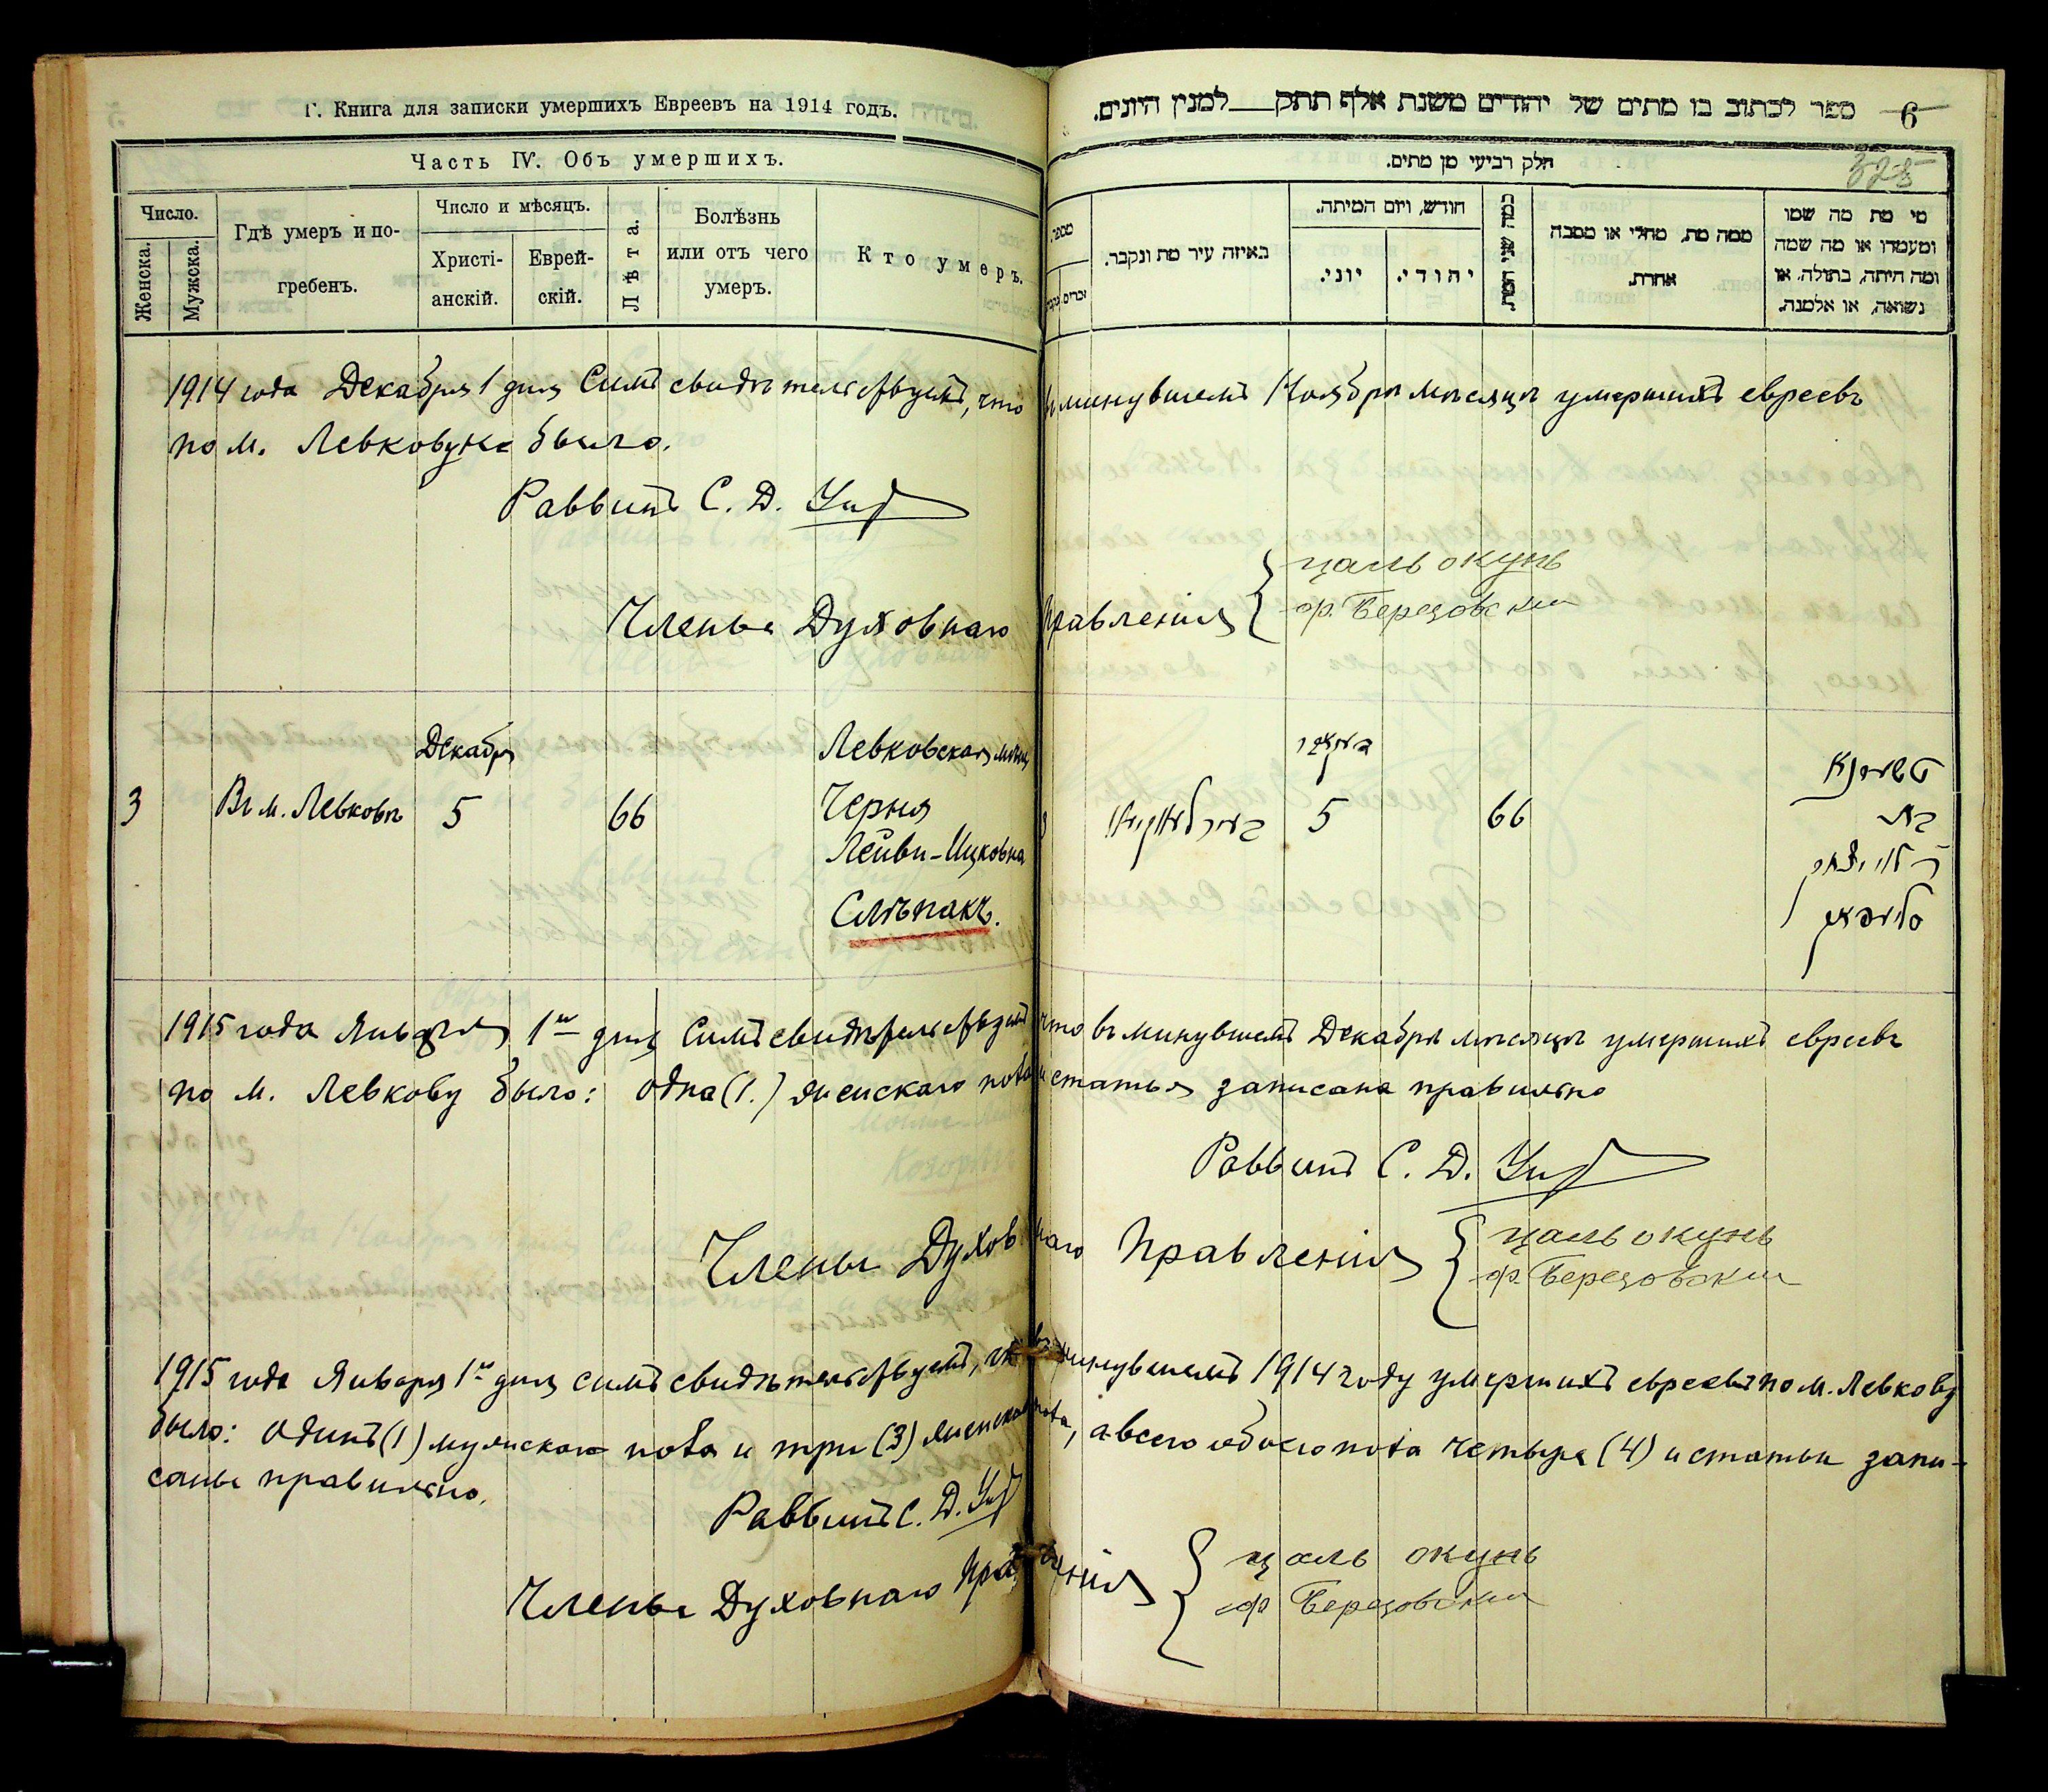 Г. Книга для записки умершихъ Евреевъ на 1914 годъ.
Часть IV. Объ умершихъ.
Число.
Женска.
Мужска.
Гдѣ умеръ и по-
гребенъ.
Число и мѣсяцъ.
Христі-
анскій.
Еврей-
скій.
Лѣта.
Болѣзнь
или отъ чего
умеръ.
Кто умеръ.
6
ספר לכתוב בו מתים של יהודים משנת אלף תתק למנין היונים.
חלק רביעי מן מתים.
מספר
באיזה עיר מת ונקבר.
חודש, ויום המיתה.
יוני.
יהודי.
ממה מת, מחלי או מסבה
אחרת.
מי מת מה שמו
ומעמדו או מה שמה
ומה היתה, בתולה, או
נשואה, או אלמנה.
1914 года Декабря 1 дня Симъ свидѣтельствуемъ, что въ минувшемъ Ноябрѣ мѣсяцѣ умершихъ евреевъ
по м. Левкову не было.
Раввинъ С. Д.
Члены Духовнаго Правленія
цаль окунь
ф. Березовскій
Декабря
Левковская мѣщ
3 Въ м. Левковѣ 5 66 Черня
Лейви-Ицковна
Слѣпакъ.
5 66
1915 года Января 1го дня Симъ свидѣтельствуемъ что въ минувшемъ Декабрѣ мѣсяцѣ умершихъ евреевъ
по м. Левкову было: одна (1.) женскаго пола и статья записана правильно
Раввинъ С. Д.
Члены Духовнаго Правленія
цаль окунь
ф. Березовскій
1915 года Января 1го дня симъ свидѣтельствуемъ, что въ минувшемъ 1914 году умершихъ евреевъ по м. Левкову
было: одинъ (1) мужскаго пола и три (3) женскаго пола, а всего обоего пола четыре (4) и статьи запи-
саны правильно.
Раввинъ С. Д.
Члены Духовнаго Правленія
цаль окунь
ф. Березовскій